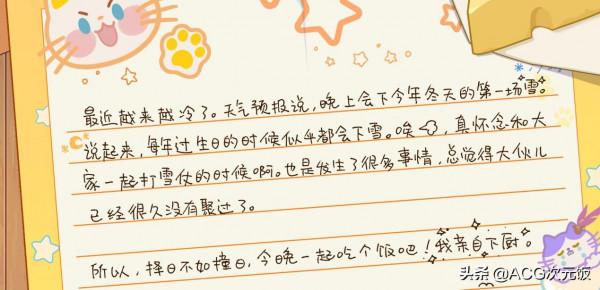 最近越来越冷了。天气预报说，晚上会下今年冬天的第一场雪。
说起来，每年过生日的时候似乎都会下雪。唉，真怀念和大
家一起打雪仗的时候啊。也是发生了很多事情，总觉得大伙儿
已经很久没有聚过了。
所以，择日不如撞日，今晚一起吃个饭吧！我亲自下厨。
头条 @ACG次元饭